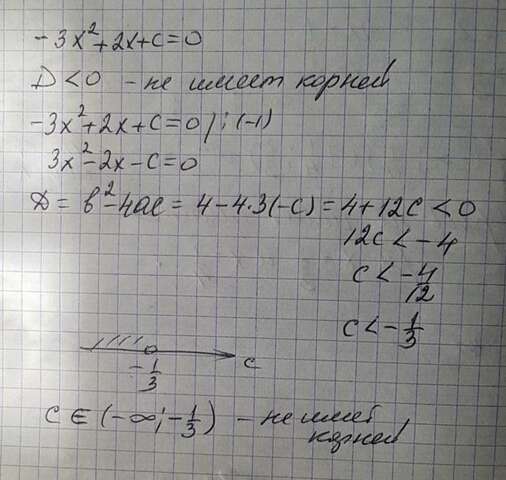 -3x²+2x+c=0
D<0 - не имеет корней
-3x²+2x+c=0 /:(-1)
3x²-2x-c=0
D = b²-4ac = 4-4·3(-c) = 4+12c <0
12c < -4
c < -4/12
c < -1/3
-1/3 c
c ∈ (-∞; -1/3) - не имеет
корней